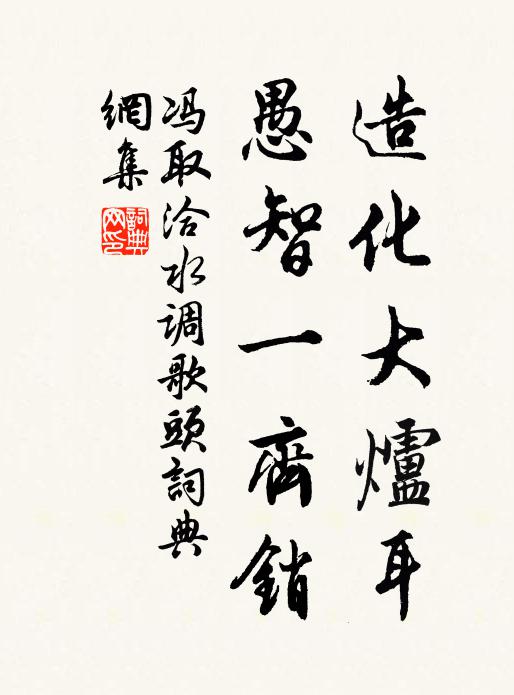 造化大爐耳
愚智一齊銷
冯取洽水调歌頭詞典
網集
詞典
网印